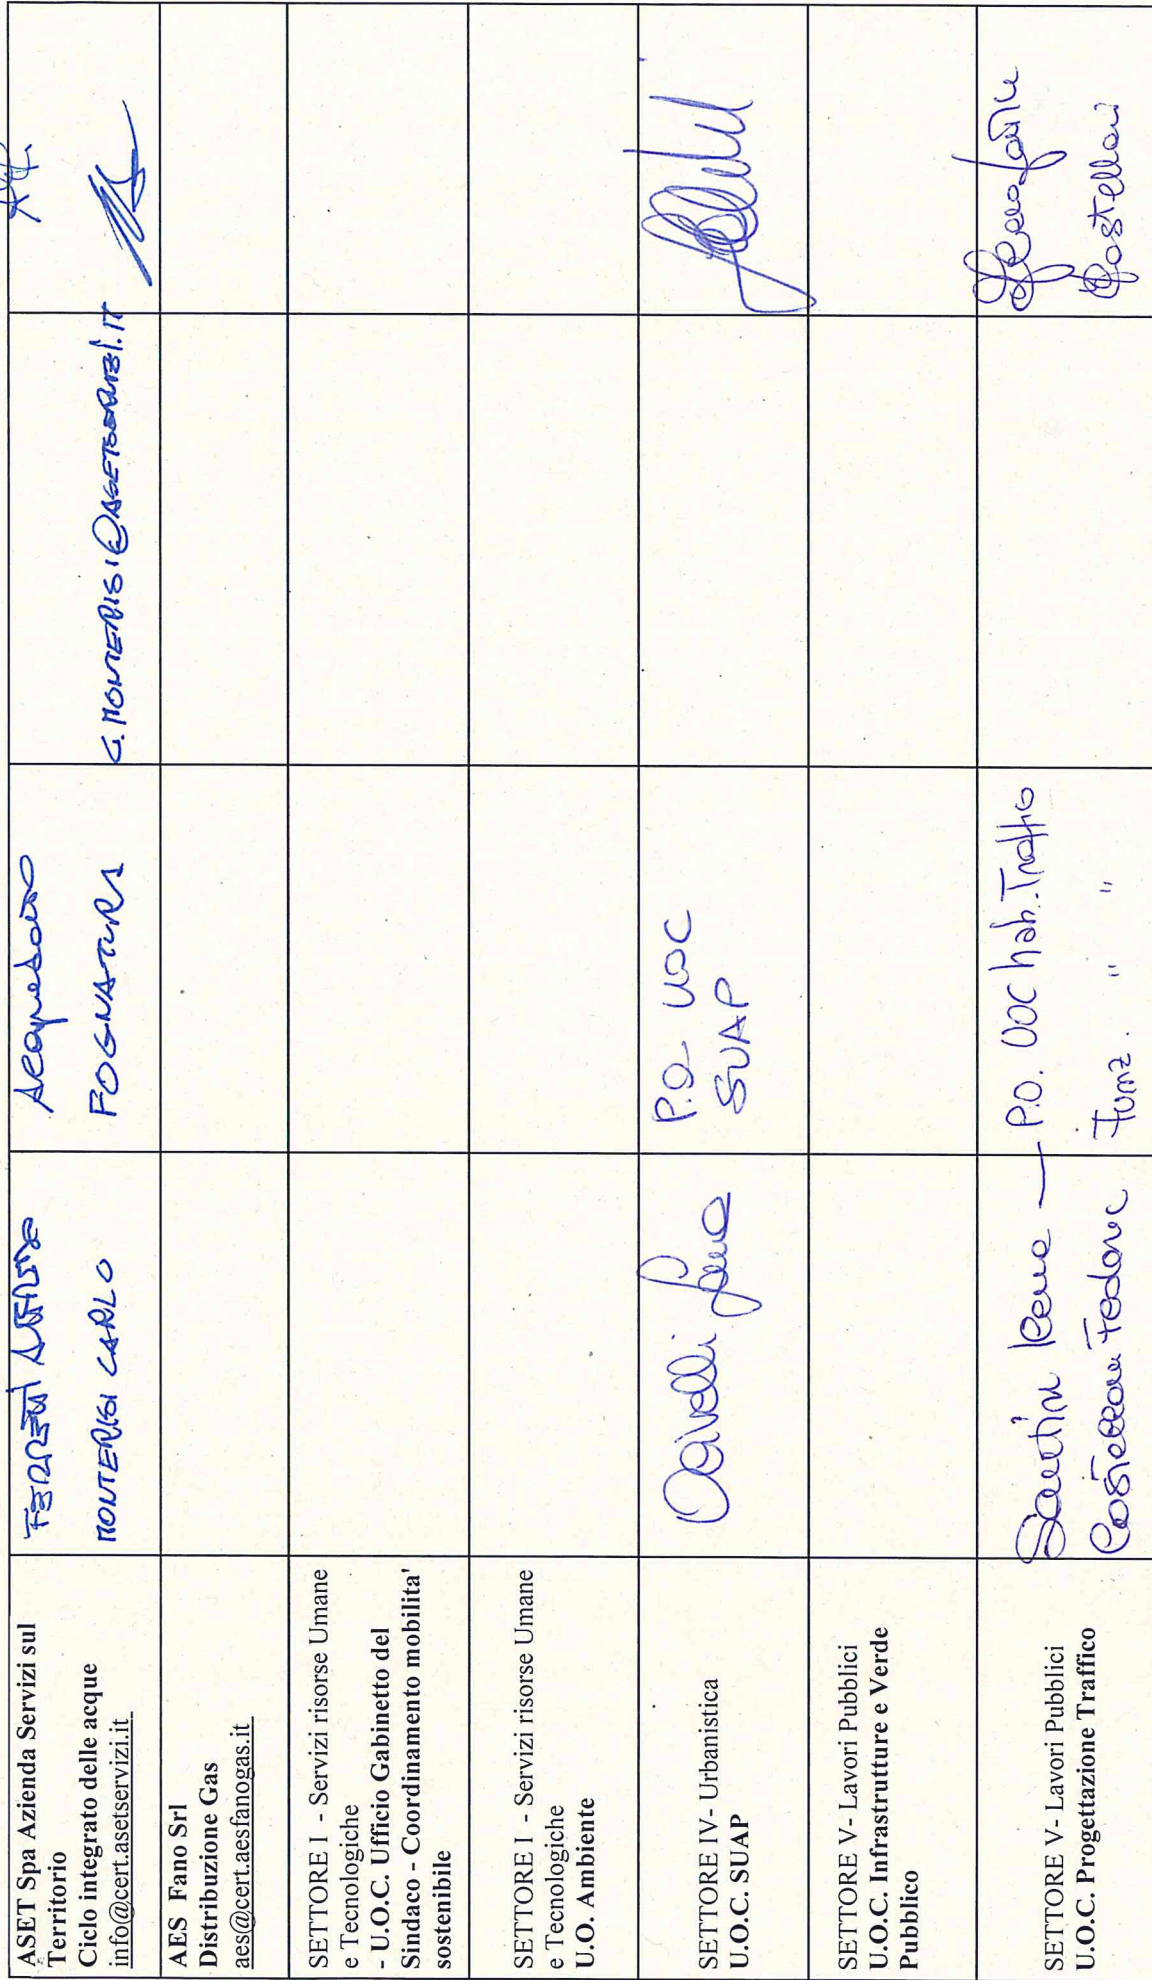 ASET Spa Azienda Servizi sul
Territorio
Ciclo integrato delle acque
info@cert.asetservizi.it
MONTERISI CARLO
FOGNATURA
C.MONTERISI@ASETSERVIZI.IT
AES Fano Srl
Distribuzione Gas
aes@cert.aesfanogas.it
SETTORE I - Servizi risorse Umane
e Tecnologiche
- U.O.C. Ufficio Gabinetto del
Sindaco - Coordinamento mobilita'
sostenibile
SETTORE I - Servizi risorse Umane
e Tecnologiche
U.O. Ambiente
SETTORE IV- Urbanistica
U.O.C. SUAP
P.O. UOC
SUAP
SETTORE V- Lavori Pubblici
U.O.C. Infrastrutture e Verde
Pubblico
SETTORE V- Lavori Pubblici
U.O.C. Progettazione Traffico
Santini Irene — P.O. UOC Traffico
Castellani Federic Funz. " "
Castellani